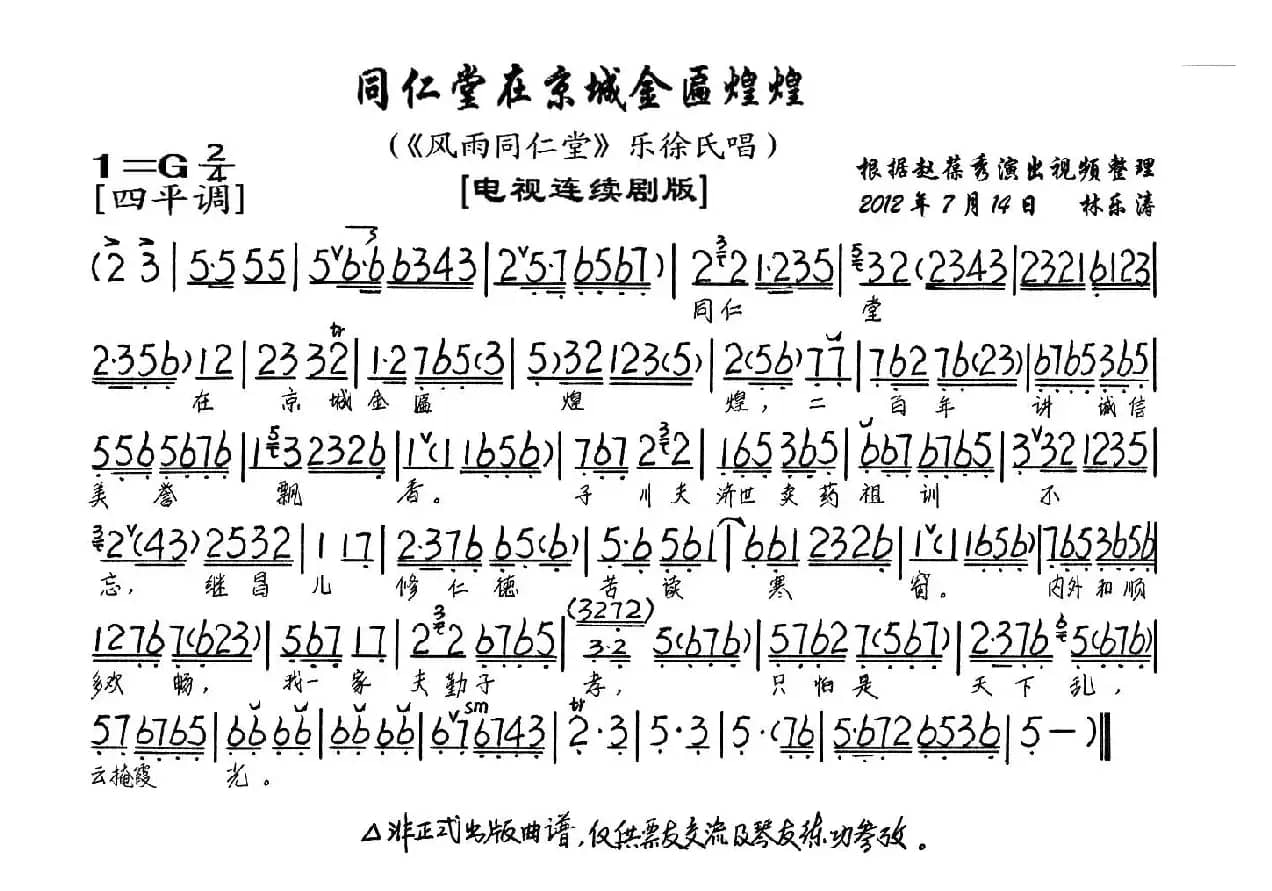 同仁堂在京城金匾煌煌
(《风雨同仁堂》乐徐氏唱)
1=G 2/4
[四平调]
[电视连续剧版]
根据赵葆秀演出视频整理
2012年7月14日 林乐涛
(2 3 | 5·5 55 | 5 6·6 6343 | 2 5·7 6567) | 2 3 2 1·235 | 5 32(2343 | 23216123 |
同仁 堂
2·356) 12 | 23 32 | 1·2 765(3 | 5)32 123(5) | 2(56) 77 | 762 76(23) | 6765365 |
在 京城金匾 煌 煌,二 百年 讲诚信
5565676 | 1 5 3 2326 | 1(1 1656) | 767 2 3 2 | 165 365 | 667 6765 | 3 32 1235 |
美誉 飘 香。 子川夫济世卖药祖训 不
3 2(43) 2532 | 1 17 | 2·376 65(6) | 5·6 561 | 661 2326 | 1(1 1656) | 7653656 |
忘, 继昌儿 修仁德 苦读 寒 窗。 内外和顺
1276 7(623) | 567 17 | 2 3 2 6765 | (3272) 3·2 5(676) | 5762 7(567) | 2·376 6 5(676) |
多欢 畅, 我一家 夫勤子 孝, 只怕是 天下乱,
57 6765 | 66 66 | 66 66 | 67 sm 6743 | tr 2·3 | 5·3 | 5·(76 | 5·672 6536 | 5 — ) ‖
云掩霞 光。
△非正式出版曲谱,仅供票友交流及琴友练功参考。